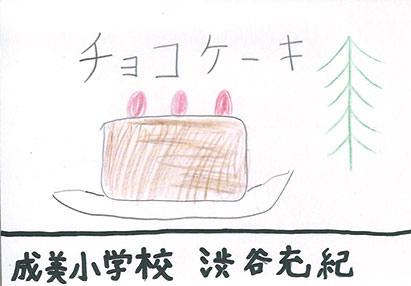 チョコケーキ
成美小学校 渋谷充紀